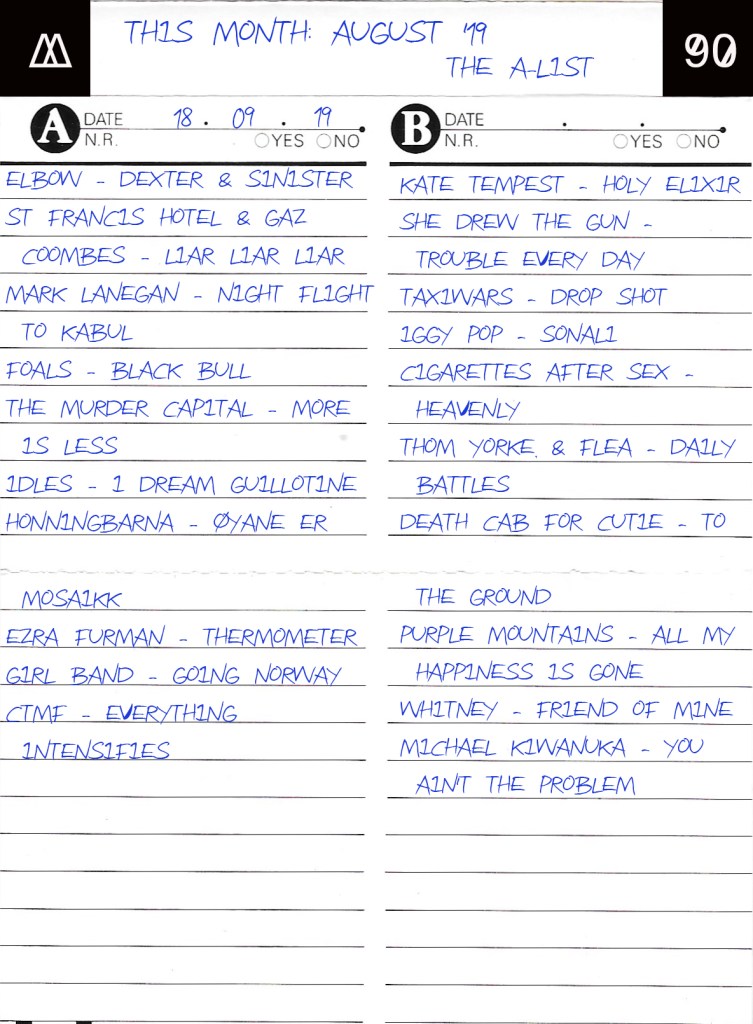 THIS MONTH: AUGUST '19
THE A-LIST
90
A DATE 18 . 09 . 19
N.R. YES NO
ELBOW - DEXTER & SINISTER
ST FRANCIS HOTEL & GAZ
COOMBES - LIAR LIAR LIAR
MARK LANEGAN - NIGHT FLIGHT
TO KABUL
FOALS - BLACK BULL
THE MURDER CAPITAL - MORE
IS LESS
IDLES - I DREAM GUILLOTINE
HONNINGBARNA - ØYANE ER
MOSAIKK
EZRA FURMAN - THERMOMETER
GIRL BAND - GOING NORWAY
CTMF - EVERYTHING
INTENSIFIES
B DATE . .
N.R. YES NO
KATE TEMPEST - HOLY ELIXIR
SHE DREW THE GUN -
TROUBLE EVERY DAY
TAXIWARS - DROP SHOT
IGGY POP - SONALI
CIGARETTES AFTER SEX -
HEAVENLY
THOM YORKE & FLEA - DAILY
BATTLES
DEATH CAB FOR CUTIE - TO
THE GROUND
PURPLE MOUNTAINS - ALL MY
HAPPINESS IS GONE
WHITNEY - FRIEND OF MINE
MICHAEL KIWANUKA - YOU
AIN'T THE PROBLEM